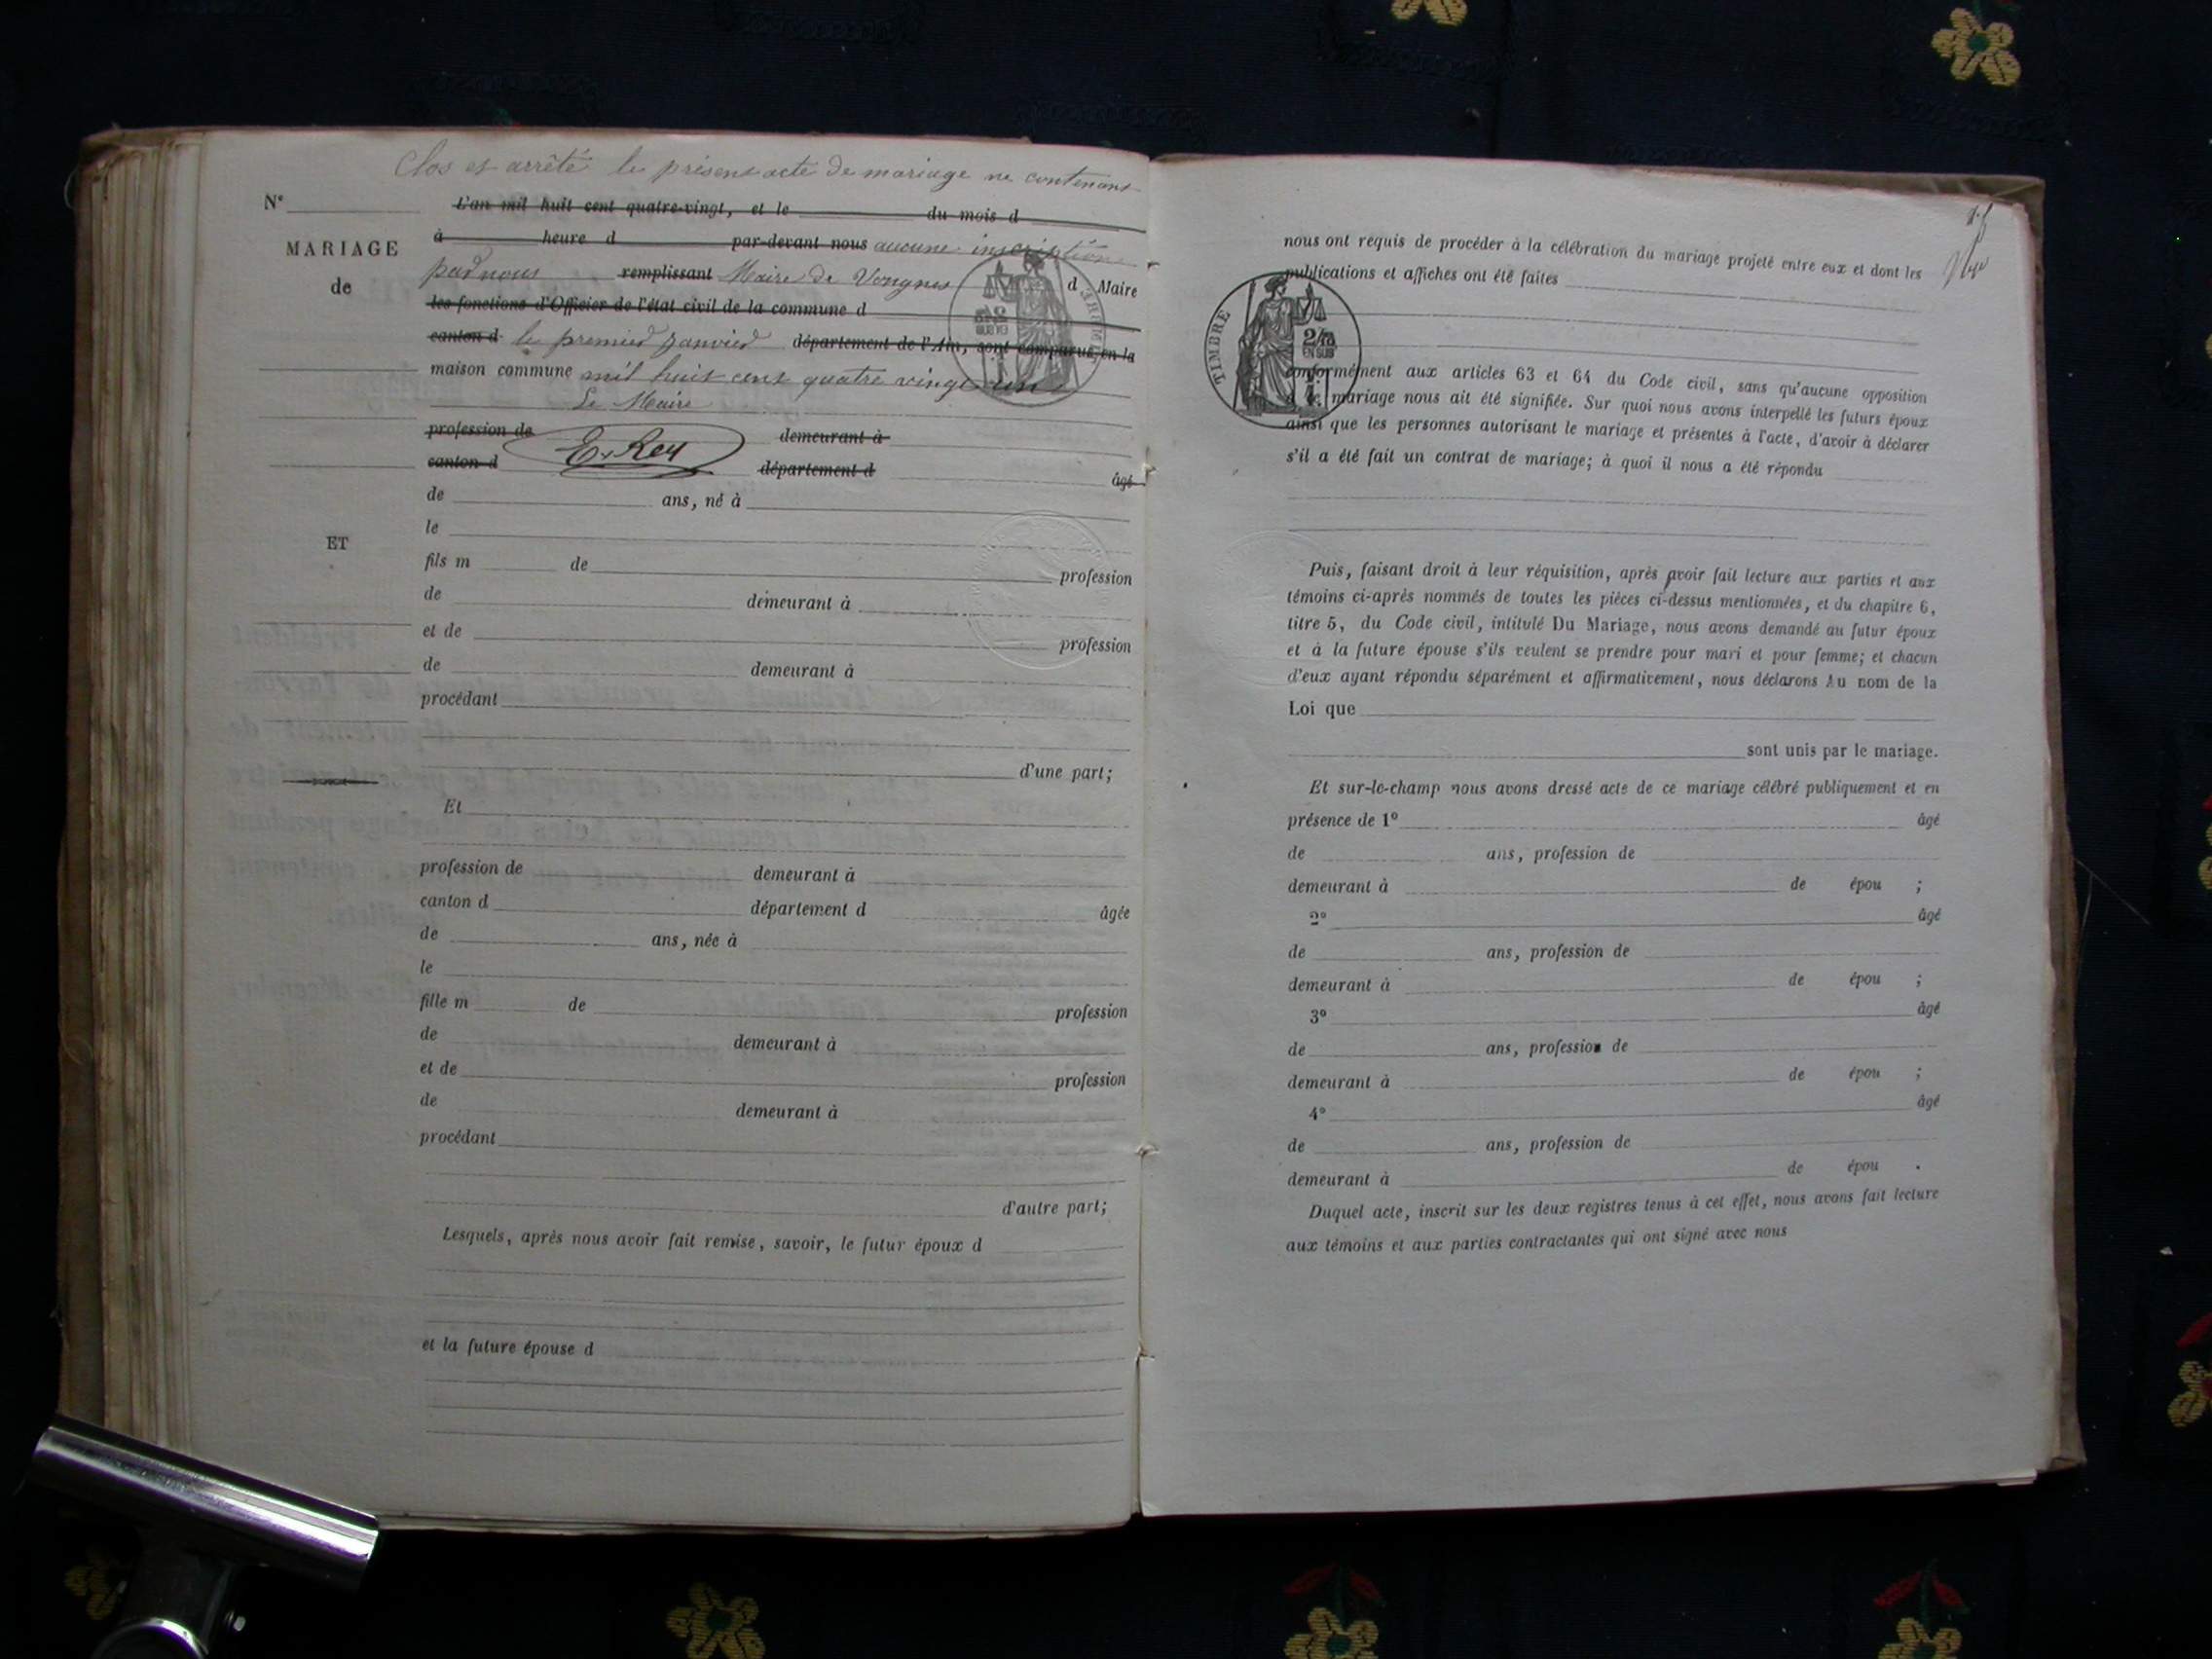 Clos et arrêté le présent acte de mariage ne contenant
N°
L'an mil huit cent quatre-vingt, et le du mois d
à heure d par-devant nous aucune inscription
MARIAGE
par nous remplissant Maire de Vongnes d Maire
de
les fonctions d'Officier de l'état civil de la commune d
canton d le premier janvier département de l'Ain, sont comparus en la
maison commune mil huit cent quatre vingt un
Le Maire
profession de demeurant à
E. Rey
canton d département d âgé
de ans, né à
le
ET
fils m de profession
de demeurant à
et de profession
de demeurant à
procédant
d'une part;
Et
profession de demeurant à
canton d département d âgée
de ans, née à
le
fille m de profession
de demeurant à
et de profession
de demeurant à
procédant
d'autre part;
Lesquels, après nous avoir fait remise, savoir, le futur époux d
et la future épouse d
nous ont requis de procéder à la célébration du mariage projeté entre eux et dont les
publications et affiches ont été faites
TIMBRE
2/10
EN SUS
conformément aux articles 63 et 64 du Code civil, sans qu'aucune opposition
mariage nous ait été signifiée. Sur quoi nous avons interpellé les futurs époux
ainsi que les personnes autorisant le mariage et présentes à l'acte, d'avoir à déclarer
s'il a été fait un contrat de mariage; à quoi il nous a été répondu
Puis, faisant droit à leur réquisition, après avoir fait lecture aux parties et aux
témoins ci-après nommés de toutes les pièces ci-dessus mentionnées, et du chapitre 6,
titre 5, du Code civil, intitulé Du Mariage, nous avons demandé au futur époux
et à la future épouse s'ils veulent se prendre pour mari et pour femme; et chacun
d'eux ayant répondu séparément et affirmativement, nous déclarons Au nom de la
Loi que
sont unis par le mariage.
Et sur-le-champ nous avons dressé acte de ce mariage célébré publiquement et en
présence de 1° âgé
de ans, profession de
demeurant à de épou ;
2° âgé
de ans, profession de
demeurant à de épou ;
3° âgé
de ans, profession de
demeurant à de épou ;
4° âgé
de ans, profession de
demeurant à de épou .
Duquel acte, inscrit sur les deux registres tenus à cet effet, nous avons fait lecture
aux témoins et aux parties contractantes qui ont signé avec nous